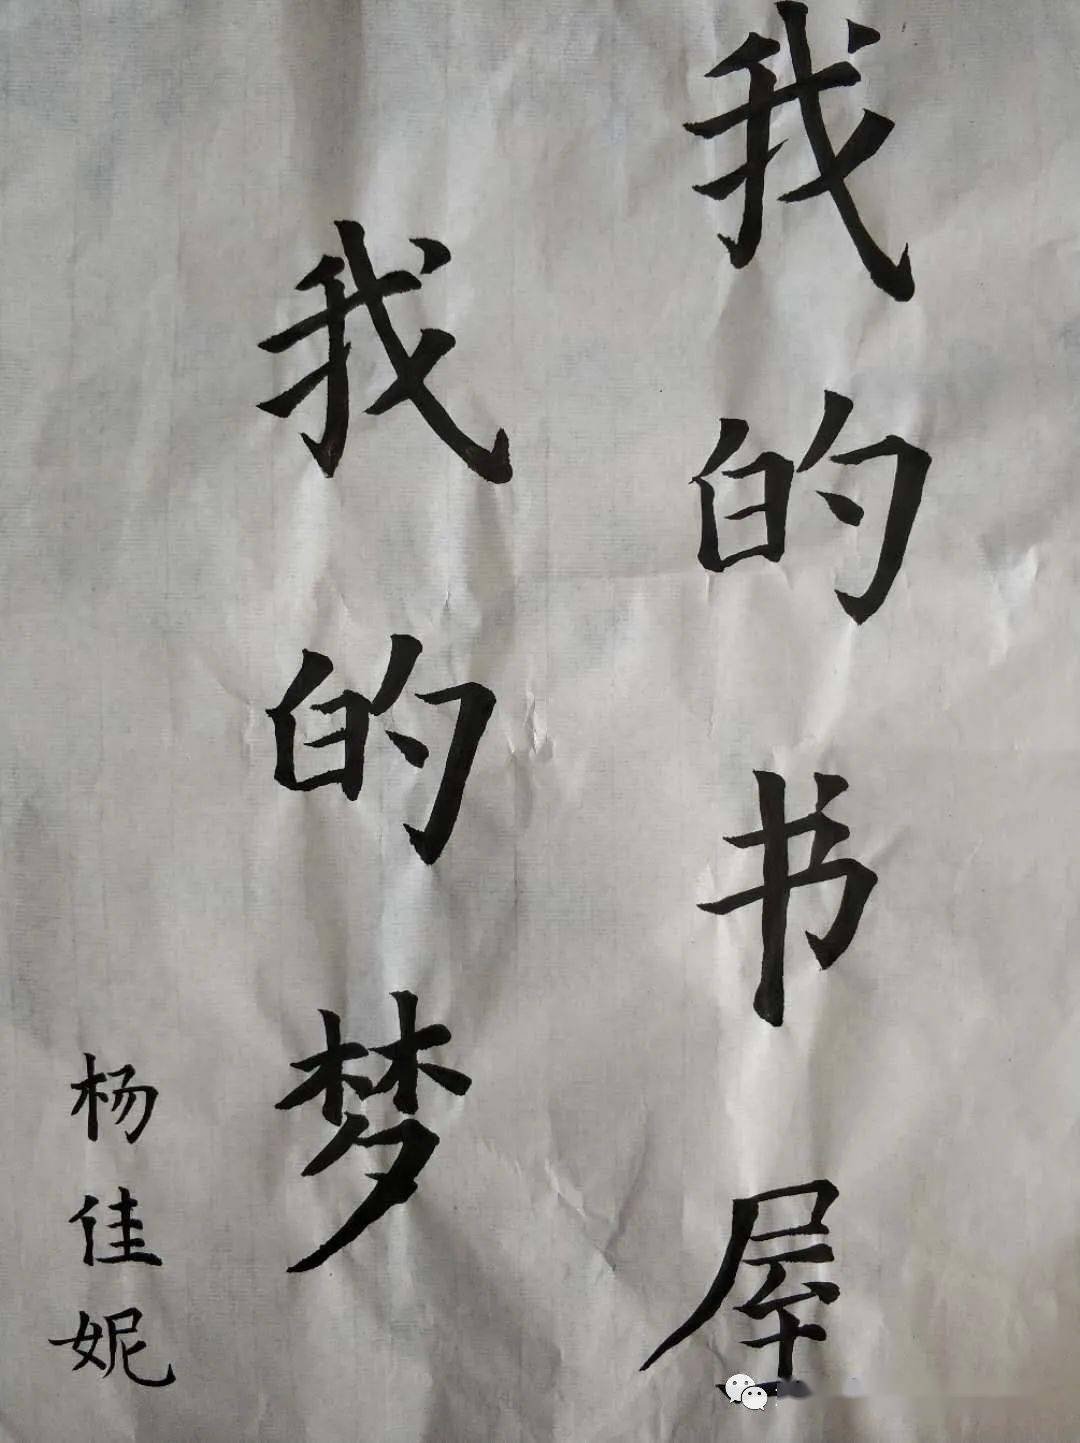 我的书屋
我的梦
杨佳妮